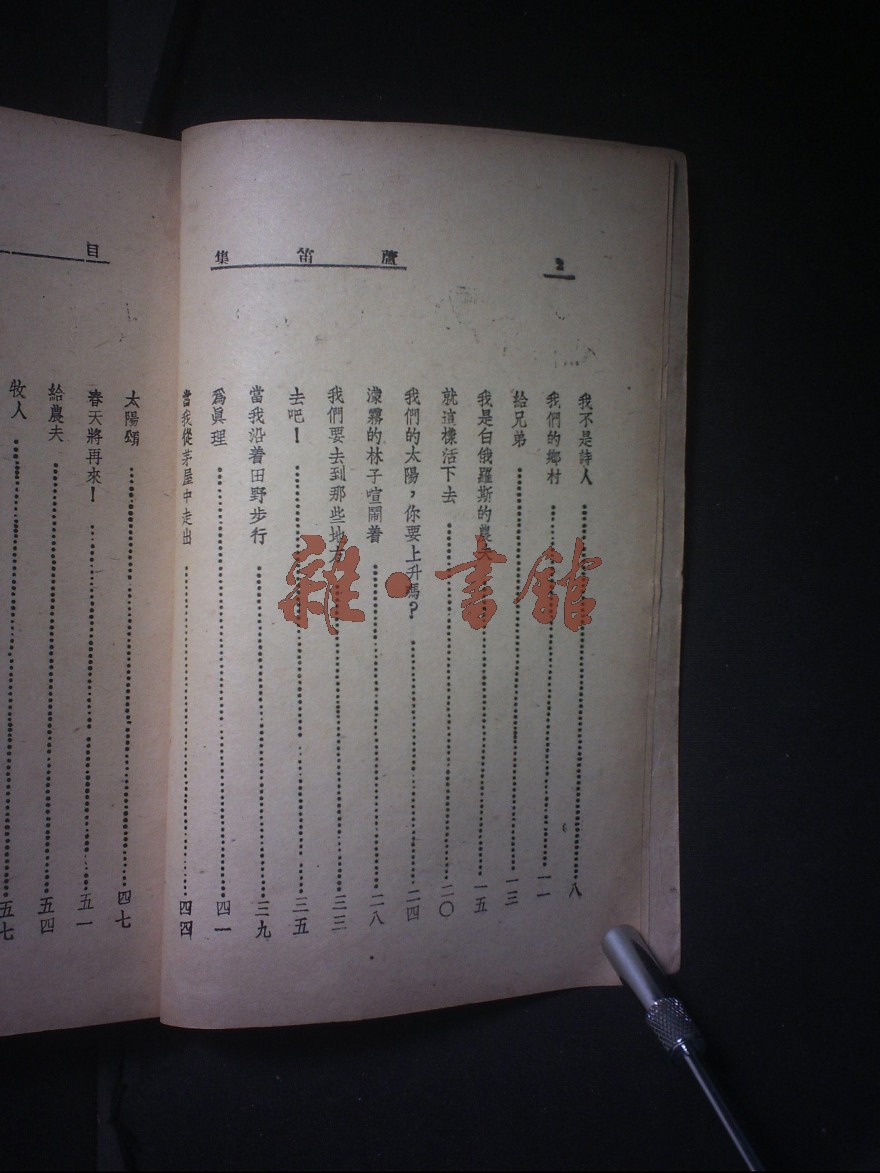 2
蘆笛集
我不是詩人……八
我們的鄉村……一一
給兄弟……一三
我是白俄羅斯的農夫……一五
就這樣活下去……二〇
我們的太陽，你要上升嗎？……二四
濛霧的林子喧鬧着……二八
我們要去到那些地方……三三
去吧！……三五
當我沿着田野步行……三九
爲眞理……四一
當我從茅屋中走出……四四
目
太陽頌……四七
春天將再來！……五一
給農夫……五四
牧人……五七
雜·書館